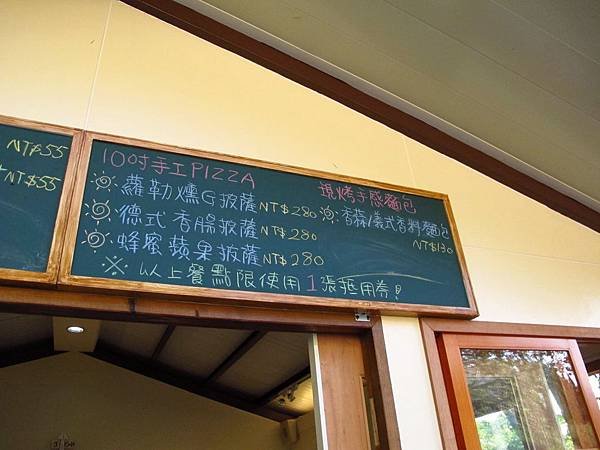 NT$55
NT$55
10吋手工PIZZA
蘿勒燻G披薩NT$280
德式香腸披薩NT$280
蜂蜜蘋果披薩NT$280
現烤手感麵包
香蒜/義式香料麵包
NT$130
※以上餐點限使用1張抵用券!